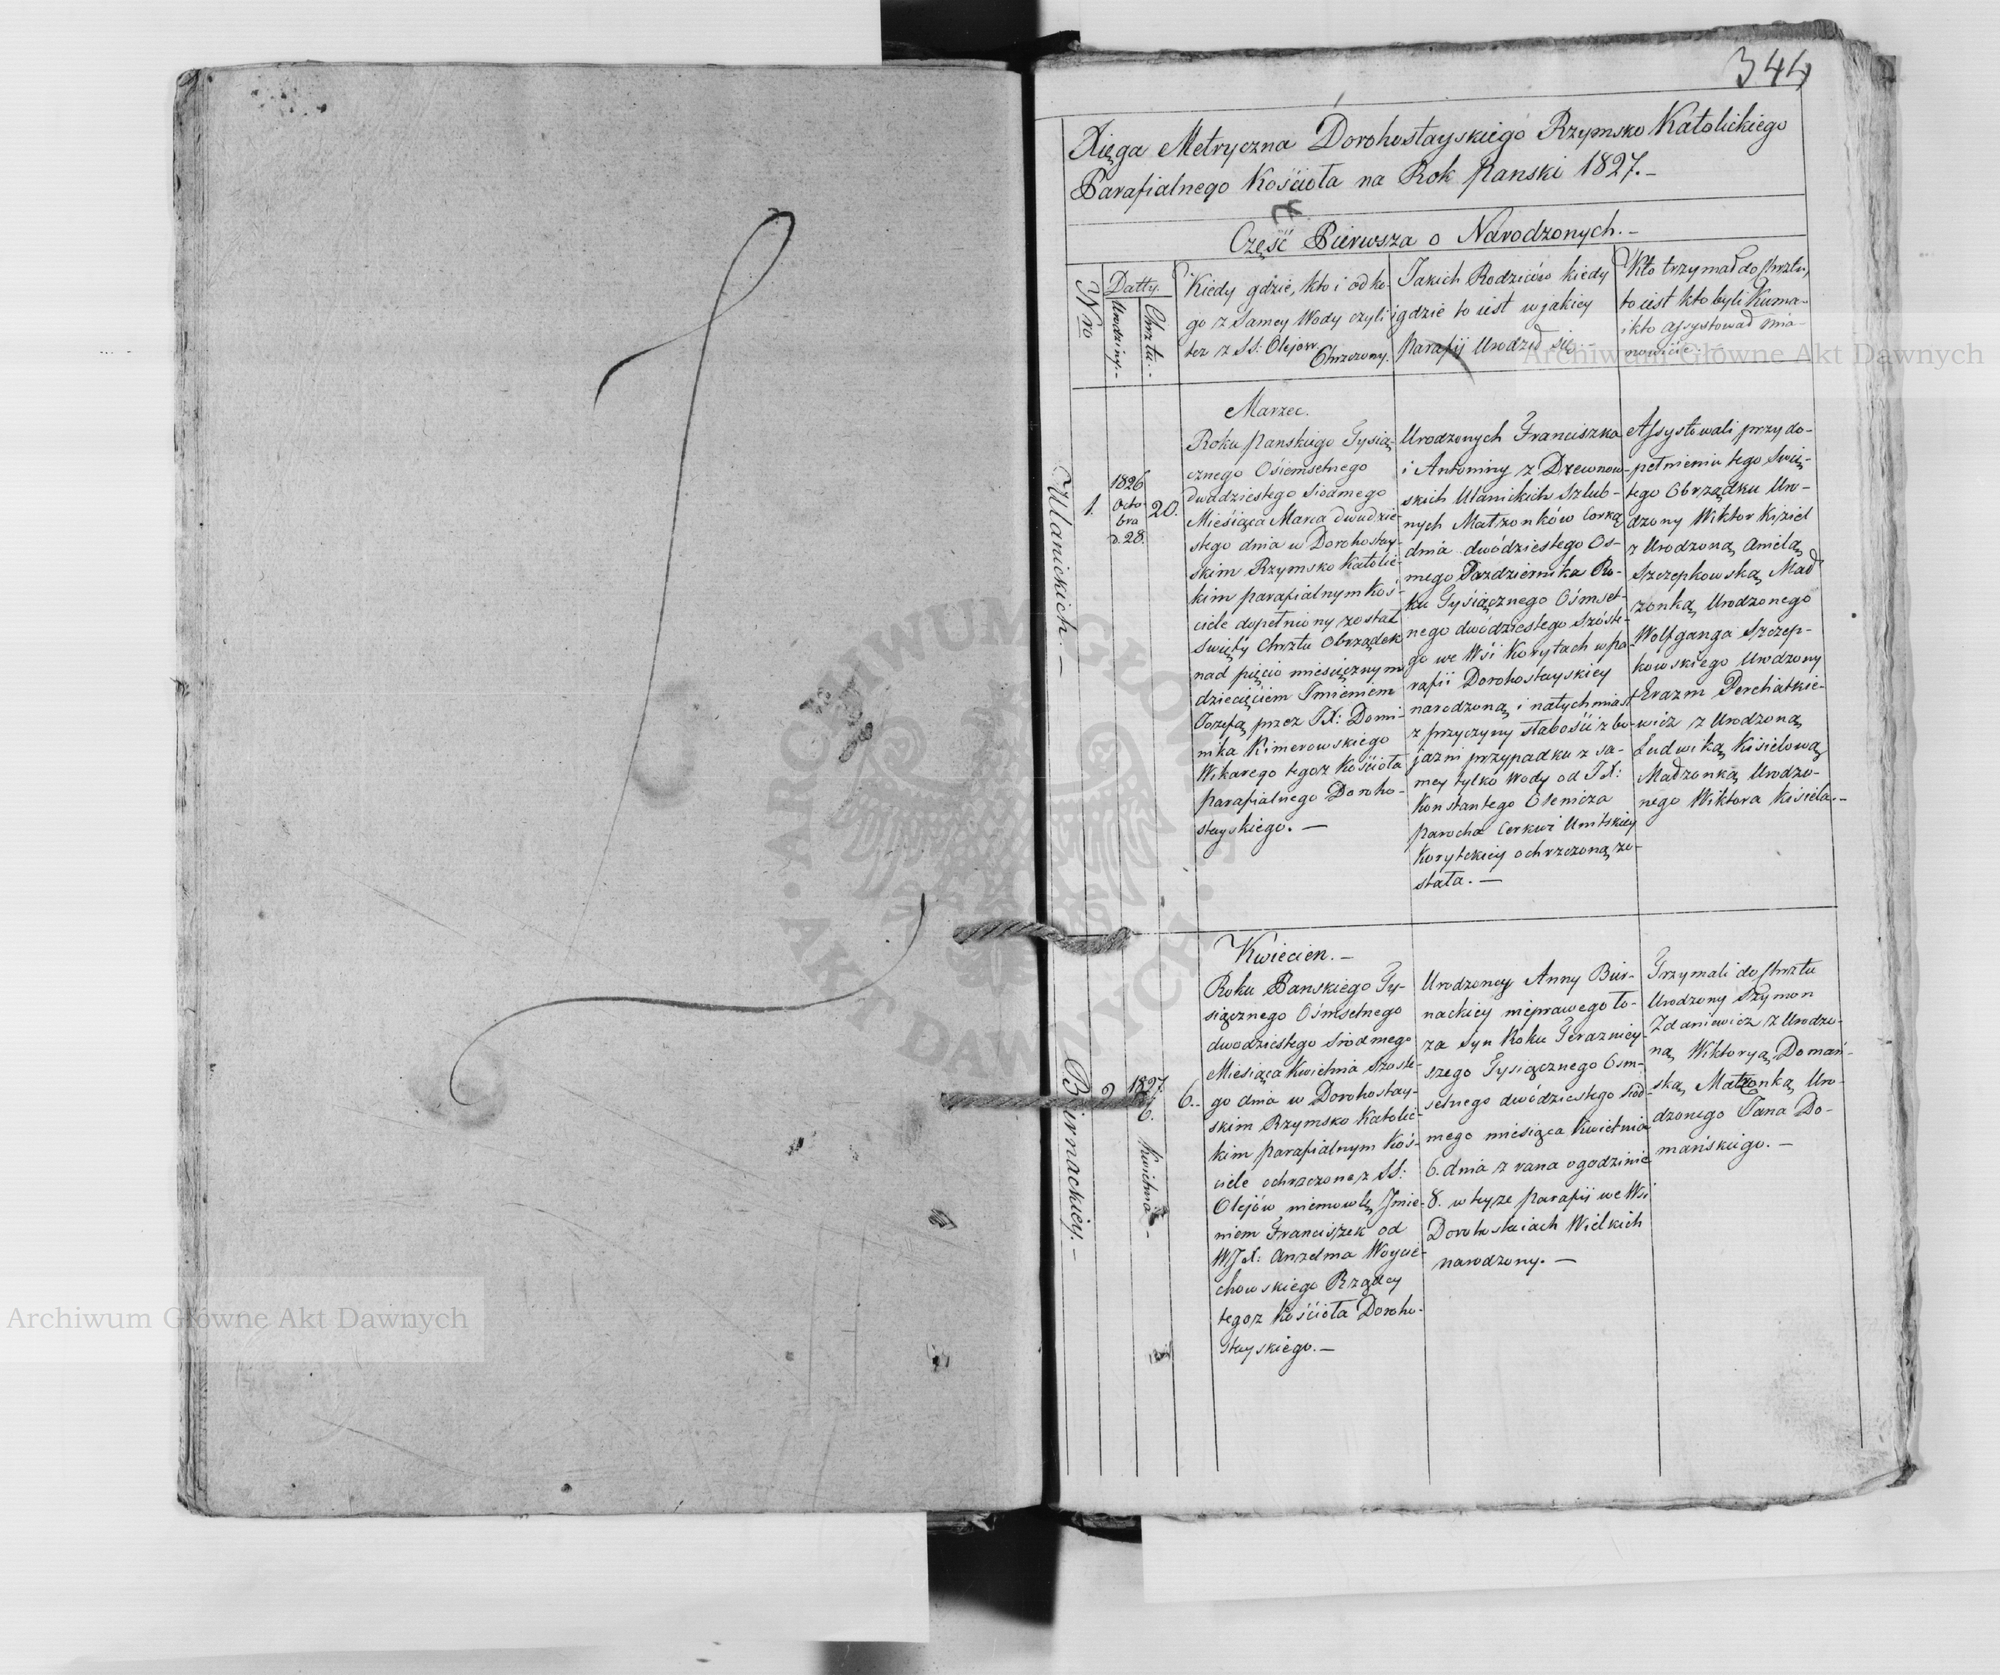 344
Xięga Metryczna Dorohostayskiego Rzymsko Katolickiego
Parafialnego Kościoła na Rok Panski 1827.-
Część Pierwsza o Narodzonych.-
Nro
Datty.
Urodziny.-
Chrztu.-
Kiedy gdzie, kto i od ko-
go z Samey Wody czyli
tez z SS: Olejow
Chrzczony.
Jakich Rodziców kiedy
i gdzie to iest w jakiey
Parafij Urodził się.-
Kto trzymał do Chrztu,
to iest kto byli Kuma-
i kto assystował mia-
nowicie.-
Ulanickich.-
1.
1826
Octo-
bra
d. 28.
20.
Marzec.
Roku Panskiego Tysią-
cznego Ośiemsetnego
dwadziestego Siodmego
Miesiąca Marca dwudzie-
stego dnia w Dorohostay-
skim Rzymsko Katolic-
kim parafialnym Koś-
ciele dopełniony został
Swięty Chrztu Obrządek
nad pięcio miesięcznym
dziecięciem Imieniem
Jozefą przez JX: Domi-
nika Kimerowskiego
Wikarego tegoz Kościoła
parafialnego Doroho-
stayskiego.-
Urodzonych Franciszka
i Antoniny z Drewnow-
skich Ulanickich Szlub-
nych Małzonków Corką
dnia dwódziestego Os-
mego Pazdziernika Ro-
ku Tysiącznego Ośmset-
nego dwódziestego Szóste-
go we Wśi Korytach w pa-
rafii Dorohostayskiey
narodzoną i natychmiast
z przyczyny słabości z bo-
jazni przypadku z sa-
mey tylko Wody od JX:
Konstantego Olenicza
parocha Cerkwi Unitskiey
Koryteckiey ochrzczoną zo-
stała.-
Assystowali przy do-
pełnieniu tego Swię-
tego Obrządku Uro-
dzony Wiktor Kisiel
z Urodzoną Anielą
Szczepkowską Mał-
zonką Urodzonego
Wolfganga Szczep-
kowskiego Urodzony
Erazm Perchatkie-
wicz z Urodzoną
Ludwiką Kisielową
Małzonką Urodzo-
nego Wiktora Kisiela.-
Biernackiey.-
2
1827
6.
Kwietnia-
6.-
Kwiecien.-
Roku Panskiego Ty-
siącznego Ośmsetnego
dwodziestego Siodmego
Miesiąca Kwietnia Szoste-
go dnia w Dorohostay-
skim Rzymsko Katolic-
kim parafialnym Koś-
ciele ochrzczone z SS:
Olejów niemowlę Imie-
niem Franciszek od
WJX: Anzelma Woycie-
chowskiego Rządcy
tegoz Kościoła Doroho-
stayskiego.-
Urodzoney Anny Bier-
nackiey nieprawego ło-
za syn Roku Terazniey-
szego Tysiącznego Osm-
setnego dwódziestego Siód-
mego miesiąca Kwietnia
6. dnia z rana o godzinie
8. w teyze parafij we Wsi
Dorohostaiach Wielkich
narodzony.-
Trzymali do Chrztu
Urodzony Szymon
Zdaniewicz z Urodzo-
ną Wiktoryą Domań-
ską Małzonką Uro-
dzonego Jana Do-
mańskiego.-
Archiwum Główne Akt Dawnych
Archiwum Główne Akt Dawnych
ARCHIWUM GŁÓWNE
AKT DAWNYCH